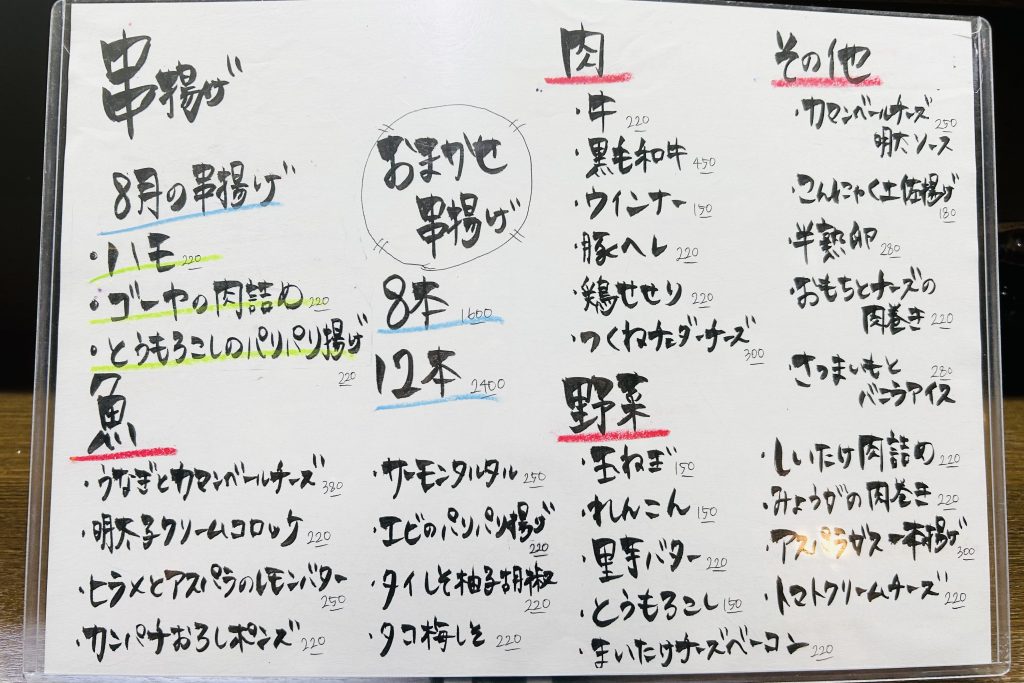 串揚げ
8月の串揚げ
・ハモ 220
・ゴーヤの肉詰め 220
・とうもろこしのパリパリ揚げ
220
おまかせ
串揚げ
8本 1600
12本 2400
魚
・うなぎとカマンベールチーズ 380
・明太子クリームコロッケ 220
・ヒラメとアスパラのレモンバター
250
・カンパチおろしポンズ 220
・サーモンタルタル 250
・エビのパリパリ揚げ
220
・タイしそ柚子胡椒
220
・タコ梅しそ 220
肉
・牛 220
・黒毛和牛 450
・ウインナー 150
・豚ヘレ 220
・鶏せせり 220
・つくねチェダーチーズ
300
野菜
・玉ねぎ 150
・れんこん 150
・里芋バター 220
・とうもろこし 150
・まいたけチーズベーコン 220
・しいたけ肉詰め 220
・みょうがの肉巻き 220
・アスパラガス一本揚げ
300
・トマトクリームチーズ 220
その他
・カマンベールチーズ 250
明太ソース
・こんにゃく土佐揚げ
180
・半熟卵 280
・おもちとチーズの
肉巻き 220
・さつまいもと 280
バニラアイス